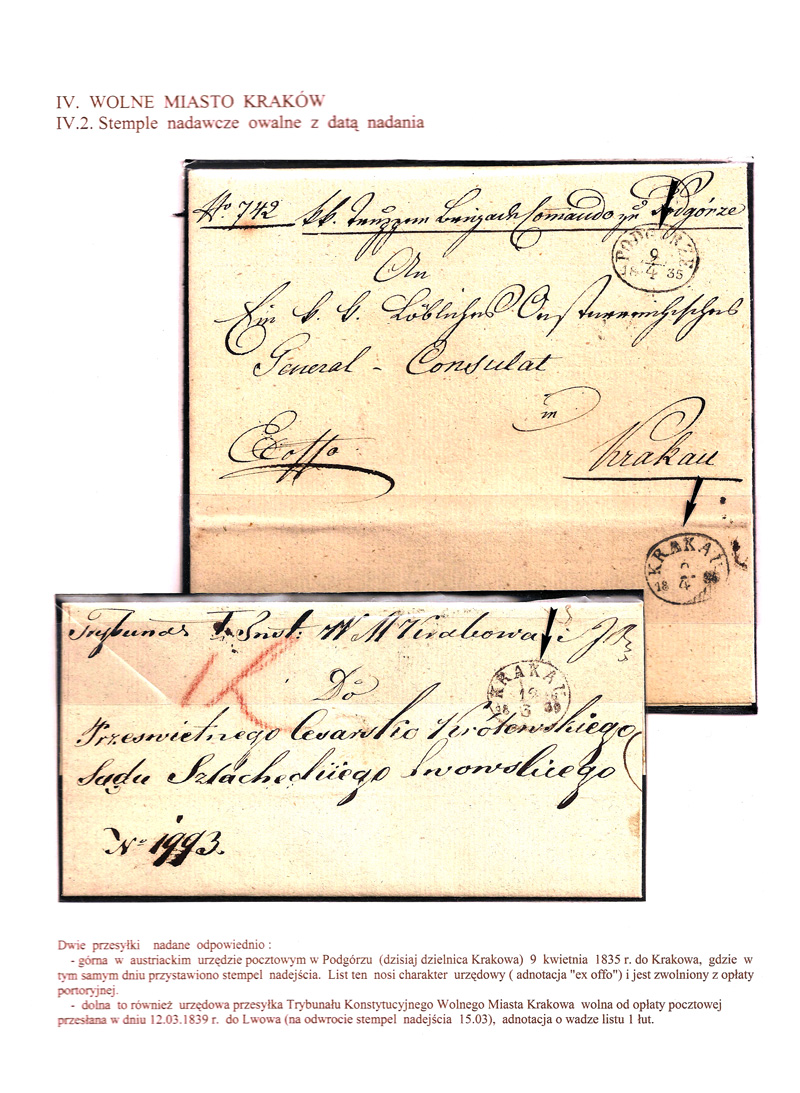 IV. WOLNE MIASTO KRAKÓW
IV.2. Stemple nadawcze owalne z datą nadania
No 742 kk. Truppen Brigade Comando zu Podgórze
PODGÓRZE
9
18 4 35
An
Ein k. k. Löbliches Oesterreichisches
General - Consulat
in
Exoffo
Krakau
KRAKAU
18 4
Trybunał I Inst: W M Krakowa
KRAKAU
12
18 3 39
Do
Prześwietnego Cesarsko Królewskiego
Sądu Szlacheckiego Lwowskiego
No 1993.
Dwie przesyłki nadane odpowiednio :
- górna w austriackim urzędzie pocztowym w Podgórzu (dzisiaj dzielnica Krakowa) 9 kwietnia 1835 r. do Krakowa, gdzie w
tym samym dniu przystawiono stempel nadejścia. List ten nosi charakter urzędowy ( adnotacja "ex offo") i jest zwolniony z opłaty
portoryjnej.
- dolna to również urzędowa przesyłka Trybunału Konstytucyjnego Wolnego Miasta Krakowa wolna od opłaty pocztowej
przesłana w dniu 12.03.1839 r. do Lwowa (na odwrocie stempel nadejścia 15.03), adnotacja o wadze listu 1 łut.